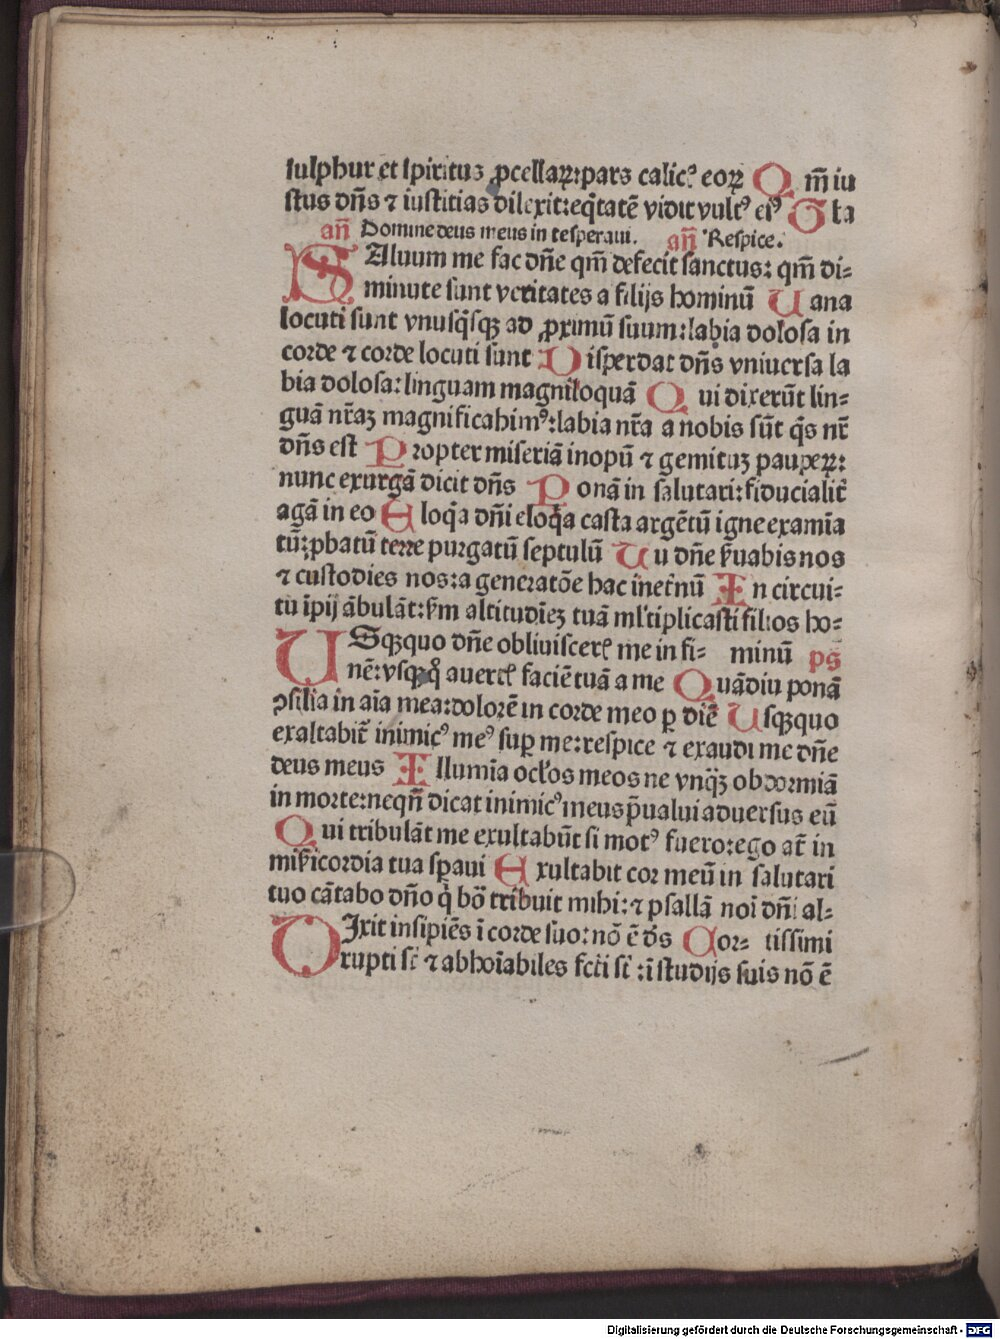 sulphur et spiritus ꝓcellaꝝ: pars calicꝰ eoꝝ Qm̄ iu
stus dn̄s ⁊ iustitias dilexit: eq̄tatē vidit vultꝰ eiꝰ Gla
an̄ Domine deus meus in te speraui. an̄ Respice.
SAluum me fac dn̄e qm̄ defecit sanctus: qm̄ di⸗
minute sunt veritates a filijs hominū Uana
locuti sunt vnusq̄sqꝫ ad ꝓximū suum: labia dolosa in
corde ⁊ corde locuti sunt Disperdat dn̄s vniuersa la
bia dolosa: linguam magniloquā Qui dixerūt lin⸗
guā nr̄aꝫ magnificabimꝰ: labia nr̄a a nobis sūt q̄s nr̄
dn̄s est Propter miseriā inopū ⁊ gemituꝫ pauꝑꝝ:
nunc exurgā dicit dn̄s Ponā in salutari: fiducialit̄
agā in eo Eloq̄a dn̄i eloq̄a casta argētū igne examīa
tū: ꝓbatū terre purgatū septulū Tu dn̄e ẜuabis nos
⁊ custodies nos: a generatōe hac inet̄nū In circui⸗
tu īpij ābulāt: ẜm altitudīeꝫ tuā ml̄tiplicasti filios ho⸗
USqꝫquo dn̄e obliuisceꝭ me in fi⸗ minū ps̄
nē: vsqꝫq̊ auertꝭ faciē tuā a me Quādiu ponā
ꝯsilia in aīa mea: dolorē in corde meo ꝑ diē Usqꝫquo
exaltabit̄ inimicꝰ meꝰ suꝑ me: respice ⁊ exaudi me dn̄e
deus meus Illumīa ocl̄os meos ne vnq̄ꝫ obdormiā
in morte: neqn̄ dicat inimicꝰ meus p̄ualui aduersus eū
Qui tribulāt me exultabūt si motꝰ fuero: ego at̄ in
miẜicordia tua sꝑaui Exultabit cor meū in salutari
tuo cātabo dn̄o q̇ bōa tribuit mihi: ⁊ psallā noī dn̄i al⸗
DIxit insipiēs ī corde suo: nō ē d̄s Cor⸗ tissimi
rupti st̄ ⁊ abhoīabiles fcti st̄: ī studijs suis nō ē
Digitalisierung gefördert durch die Deutsche Forschungsgemeinschaft - DFG